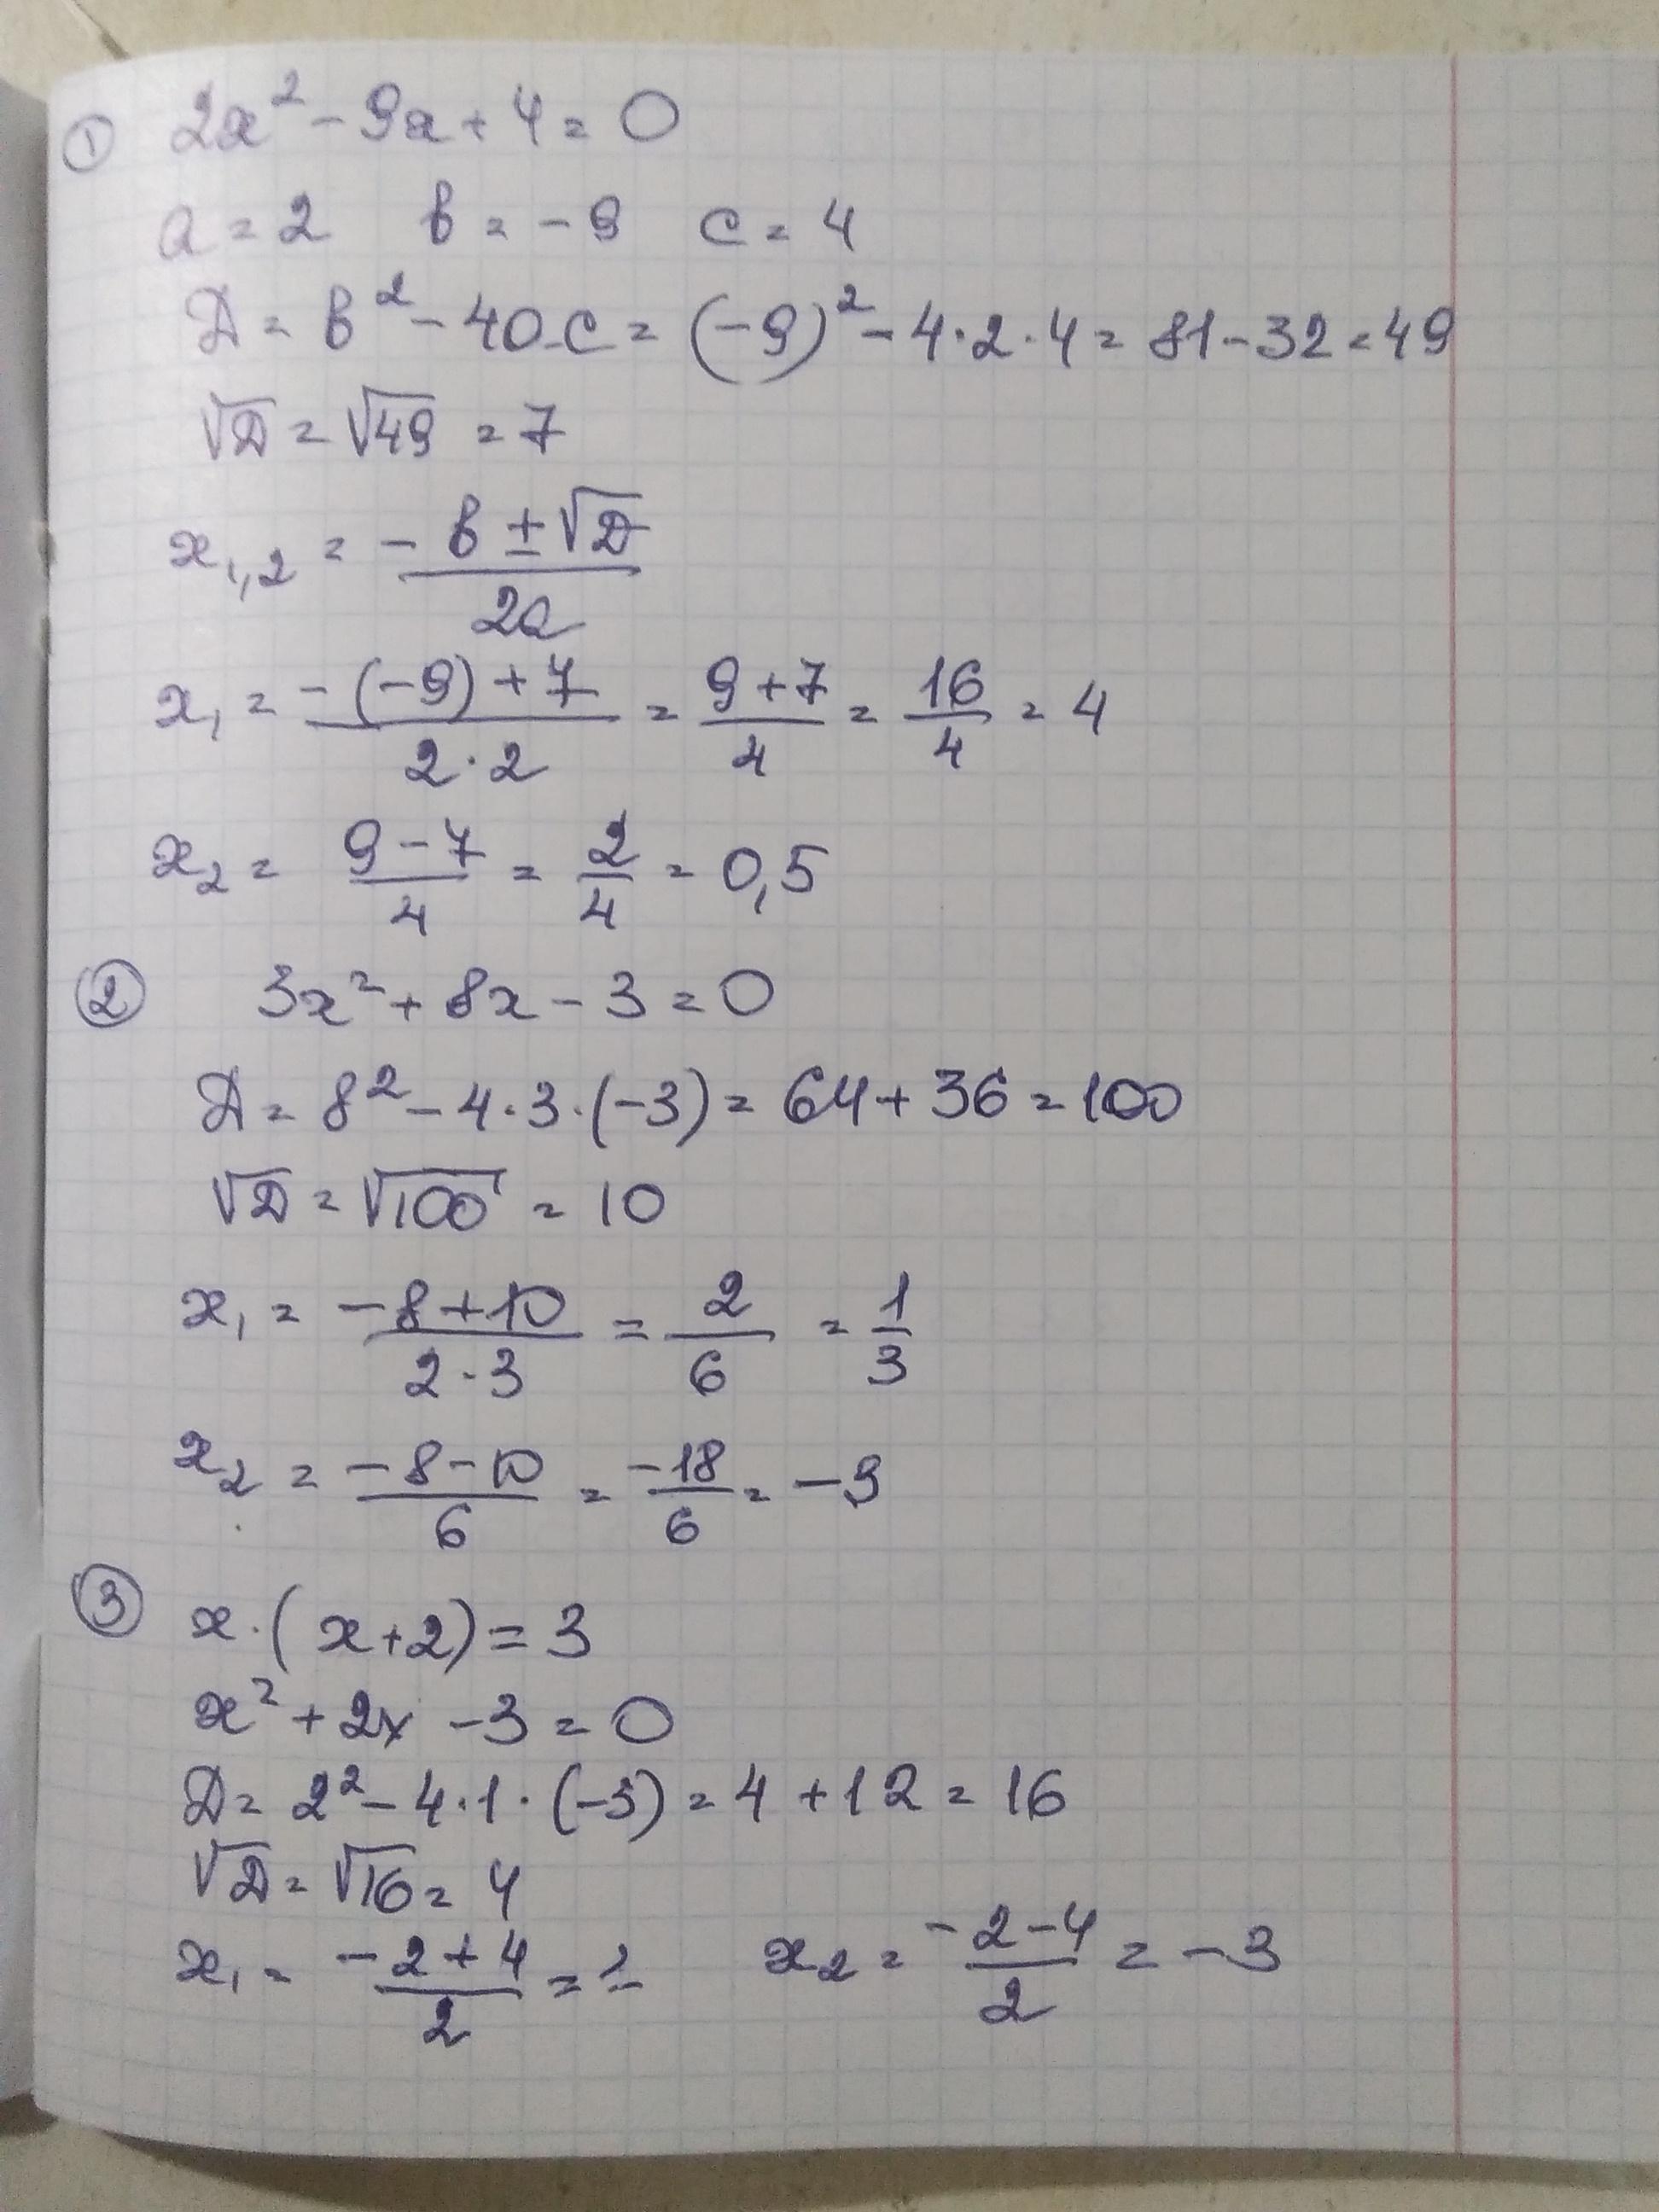 ① 2x² - 9x + 4 = 0
a = 2 b = -9 c = 4
D = b² - 4ac = (-9)² - 4·2·4 = 81 - 32 = 49
√D = √49 = 7
x₁,₂ = (-b ± √D)/(2a)
x₁ = (-(-9) + 7)/(2·2) = (9+7)/4 = 16/4 = 4
x₂ = (9-7)/4 = 2/4 = 0,5
② 3x² + 8x - 3 = 0
D = 8² - 4·3·(-3) = 64 + 36 = 100
√D = √100 = 10
x₁ = (-8+10)/(2·3) = 2/6 = 1/3
x₂ = (-8-10)/6 = -18/6 = -3
③ x·(x+2) = 3
x² + 2x - 3 = 0
D = 2² - 4·1·(-3) = 4 + 12 = 16
√D = √16 = 4
x₁ = (-2+4)/2 = 1 x₂ = (-2-4)/2 = -3